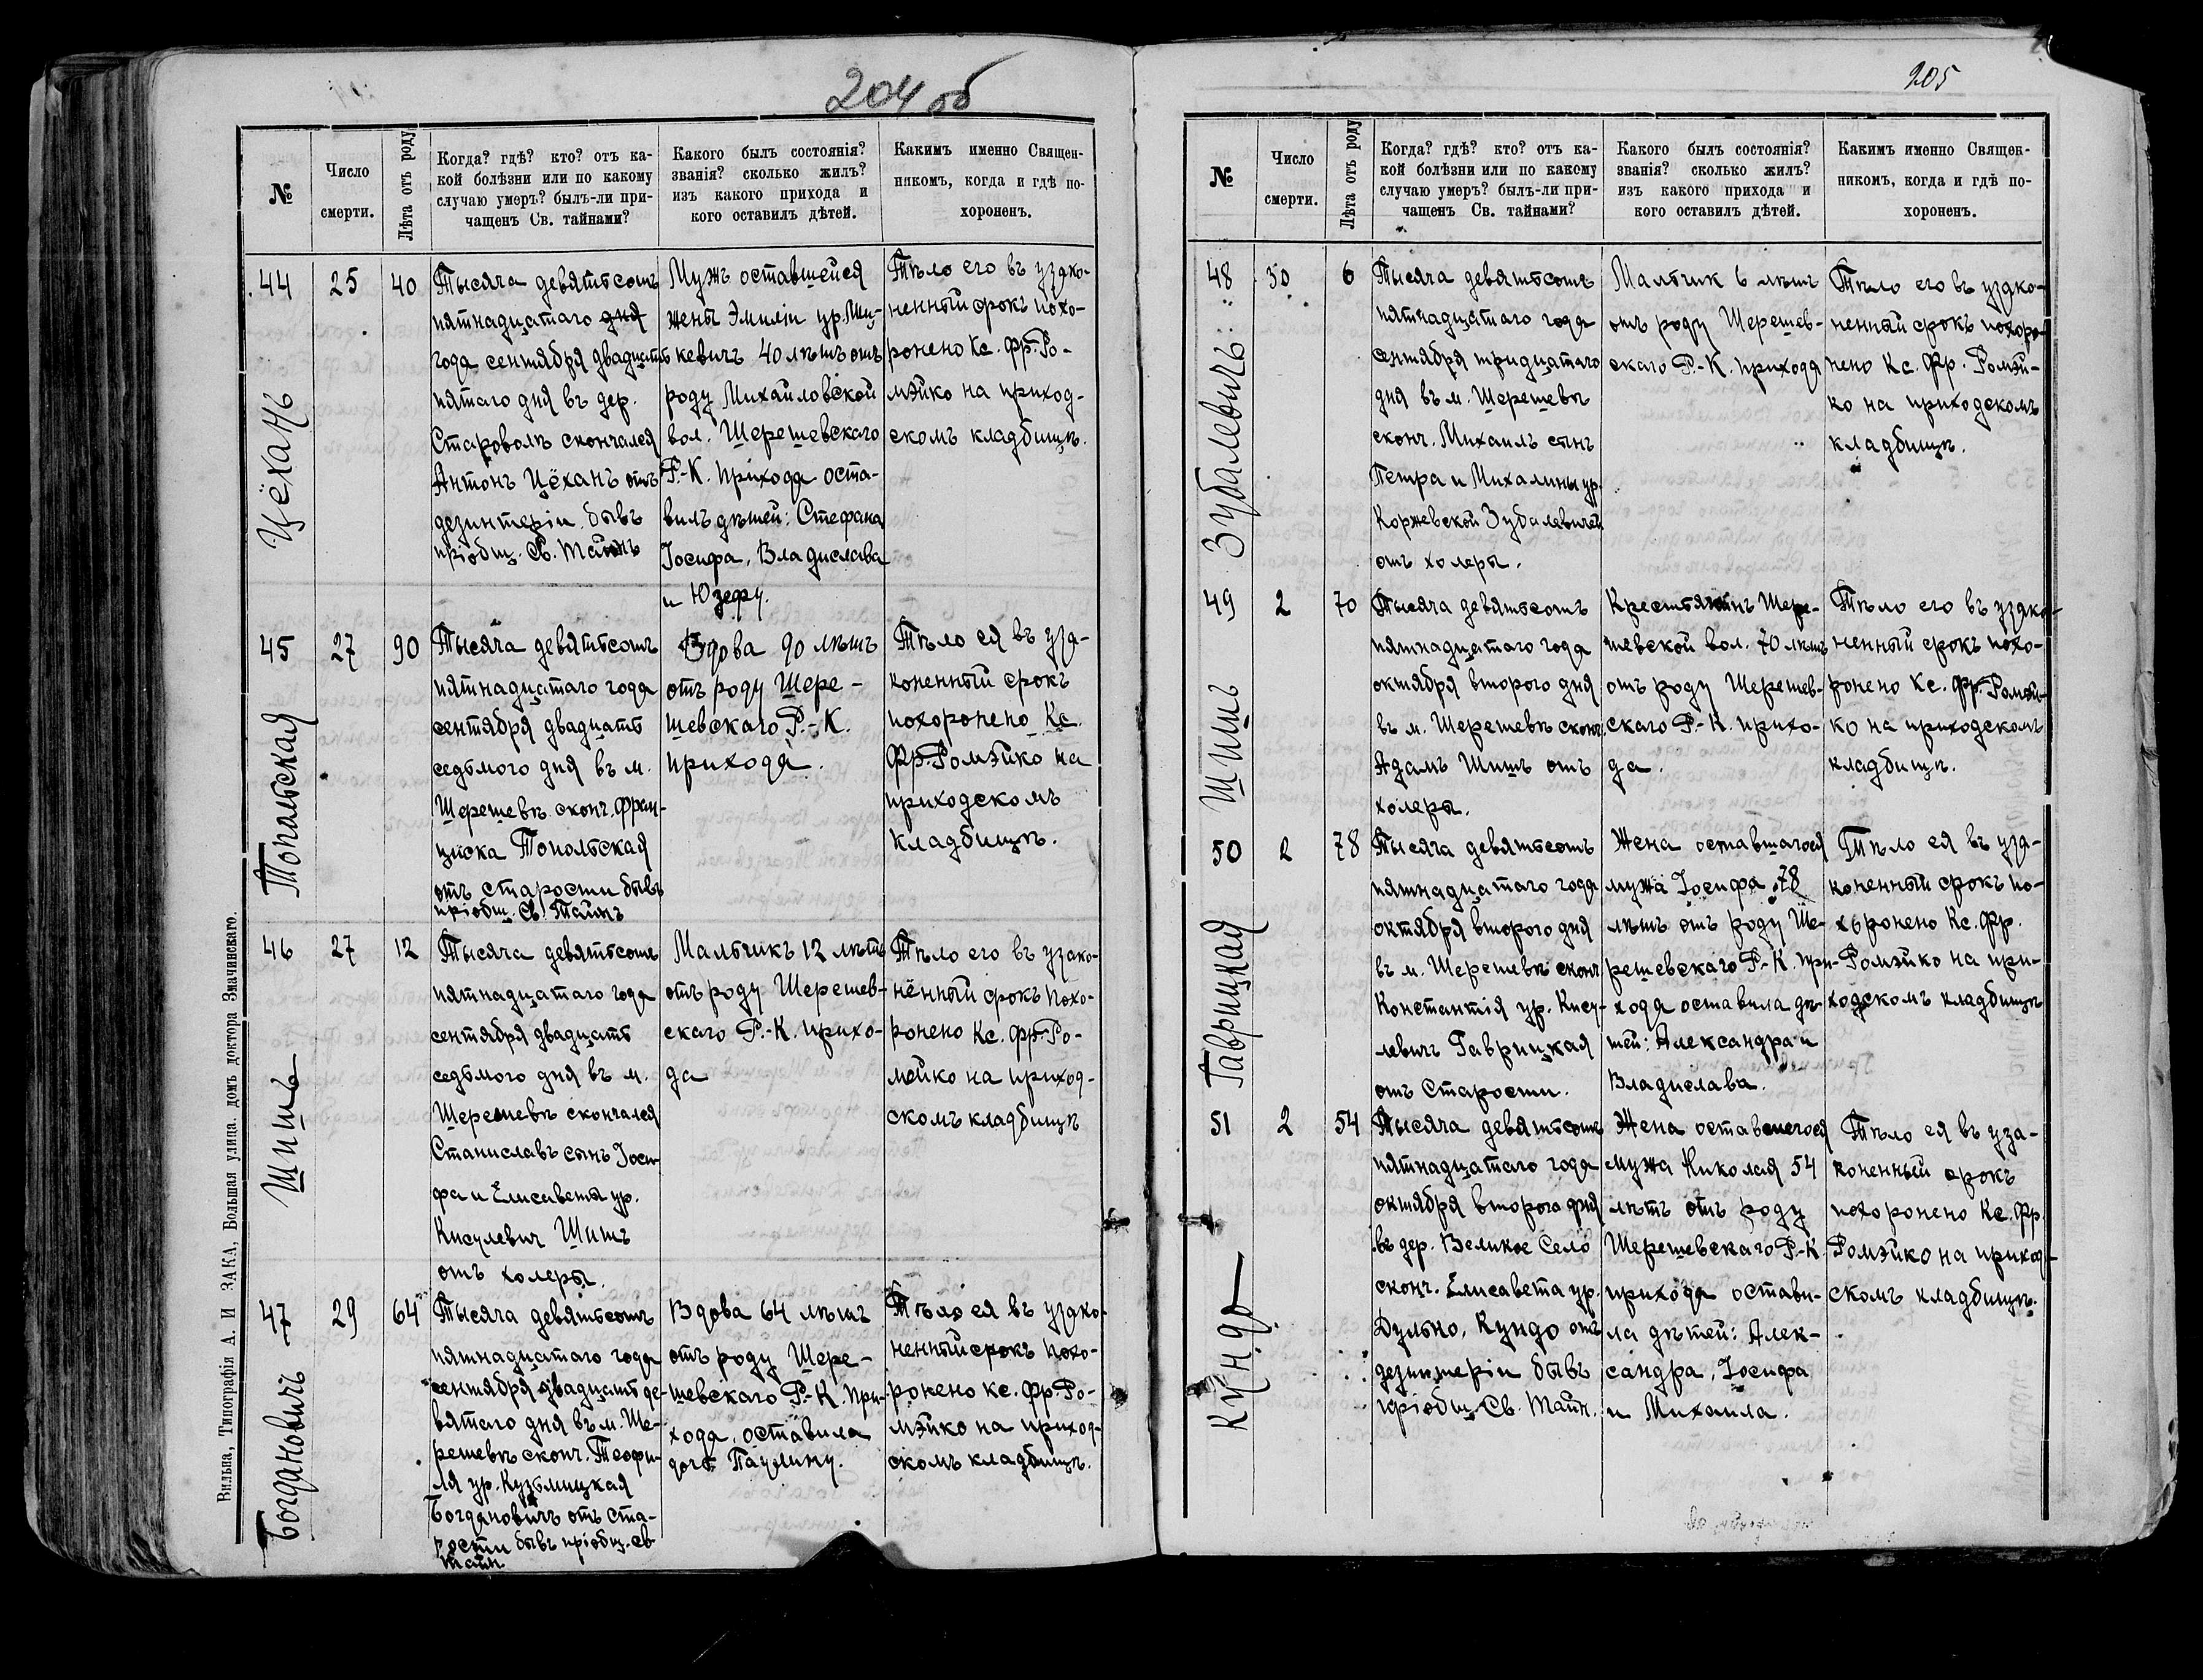 204 об
№
Число
смерти.
Лѣта отъ роду
Когда? гдѣ? кто? отъ ка-
кой болѣзни или по какому
случаю умеръ? былъ-ли при-
чащенъ Св. тайнами?
Какого былъ состоянія?
званія? сколько жилъ?
изъ какого прихода и
кого оставилъ дѣтей.
Какимъ именно Священ-
никомъ, когда и гдѣ по-
хороненъ.
44
Цёханъ
25
40
Тысяча девятьсотъ
пятнадцатаго дня
года сентября двадцать
пятаго дня въ дер.
Староволѣ скончался
Антонъ Цёханъ отъ
дезинтеріи бывъ
пріобщ. Св. Тайнъ
Мужъ оставшейся
жены Эмиліи ур. Миц-
кевичъ 40 лѣтъ отъ
роду Михайловской
вол. Шерешевскаго
Р.-К. прихода оста-
вилъ дѣтей: Стефана
Іосифа, Владислава
и Юзефу.
Тѣло его въ узако-
ненный срокъ похо-
ронено Кс. Фр. Ро-
мэйко на приход-
скомъ кладбищѣ.
45
Топольская
27
90
Тысяча девятьсотъ
пятнадцатаго года
сентября двадцать
седьмого дня въ м.
Шерешевѣ сконч. Фран-
циска Топольская
отъ старости бывъ
пріобщ. Св. Тайнъ
Вдова 90 лѣтъ
отъ роду Шере-
шевскаго Р.-К.
прихода.
Тѣло ея въ уза-
коненный срокъ
похоронено Кс.
Фр. Ромэйко на
приходскомъ
кладбищѣ.
46
Шишъ
27
12
Тысяча девятьсотъ
пятнадцатаго года
сентября двадцать
седьмого дня въ м.
Шерешевѣ скончался
Станиславъ сынъ Іоси-
фа и Елисаветы ур.
Кисулевич Шишъ
отъ холеры.
Мальчикъ 12 лѣтъ
отъ роду Шерешев-
скаго Р.-К. прихо-
да
Тѣло его въ узако-
нённый срокъ похо-
ронено Кс. Фр. Ро-
мэйко на приход-
скомъ кладбищѣ
47
Богдановичъ
29
64
Тысяча девятьсотъ
пятнадцатаго года
сентября двадцать де-
вятаго дня въ м. Ше-
решевѣ сконч. Теофи-
ля ур. Кузьмицкая
Богдановичъ отъ ста-
рости бывъ пріобщ. Св.
Тайн
Вдова 64 лѣтъ
отъ роду Шере-
шевскаго Р.-К. при-
хода, оставила
дочь Паулину.
Тѣло ея въ узако-
ненный срокъ похо-
ронено кс. Фр. Ро-
мэйко на приход-
скомъ кладбищѣ.
Вильна, Типографія А. И ЗАКА, Большая улица. домъ доктора Змачинскаго.
205
№
Число
смерти.
Лѣта отъ роду
Когда? гдѣ? кто? отъ ка-
кой болѣзни или по какому
случаю умеръ? былъ-ли при-
чащенъ Св. тайнами?
Какого былъ состоянія?
званія? сколько жилъ?
изъ какого прихода и
кого оставилъ дѣтей.
Какимъ именно Священ-
никомъ, когда и гдѣ по-
хороненъ.
48
Зубалевичъ
30
6
Тысяча девятьсотъ
пятнадцатаго года
сентября тридцатаго
дня въ м. Шерешевѣ
сконч. Михаилъ сынъ
Петра и Михалины ур.
Коржевской Зубалевичей
отъ холеры.
Мальчик 6 лѣтъ
отъ роду Шерешев-
скаго Р.-К. прихода
Тѣло его въ узако-
ненный срокъ похоро-
нено Кс. Фр. Ромэй-
ко на приходскомъ
кладбищѣ.
49
Шишъ
2
70
Тысяча девятьсотъ
пятнадцатаго года
октября второго дня
въ м. Шерешевѣ сконч.
Адамъ Шишъ отъ
холеры.
Крестьянинъ Шере-
шевской вол. 70 лѣтъ
отъ роду Шерешев-
скаго Р.-К. прихо-
да.
Тѣло его въ узако-
ненный срокъ похо-
ронено Кс. Фр. Ромэй-
ко на приходскомъ
кладбищѣ.
50
Гаврицкая
2
78
Тысяча девятьсотъ
пятнадцатаго года
октября второго дня
въ м. Шерешевѣ сконч
Константія ур. Кису-
левичъ Гаврицкая
отъ Старости.
Жена оставшагося
мужа Іосифа 78
лѣтъ отъ роду Ше-
решевскаго Р.-К. при-
хода оставила дѣ-
тей: Александра и
Владислава.
Тѣло ея въ уза-
коненный срокъ по-
хоронено Кс. Фр.
Ромэйко на при-
ходскомъ кладбищѣ
51
Кундо
2
54
Тысяча девятьсотъ
пятнадцатаго года
октября второго дня
въ дер. Великое Село
сконч. Елисавета ур.
Дулько, Кундо отъ
дезинтеріи бывъ
пріобщ. Св. Тайн.
Жена оставшегося
мужа Николая 54
лѣтъ отъ роду
Шерешевскаго Р.-К.
прихода остави-
ла дѣтей: Алек-
сандра, Іосифа
и Михаила.
Тѣло ея въ уза-
коненный срокъ
похоронено Кс. Фр.
Ромэйко на приход-
скомъ кладбищѣ.